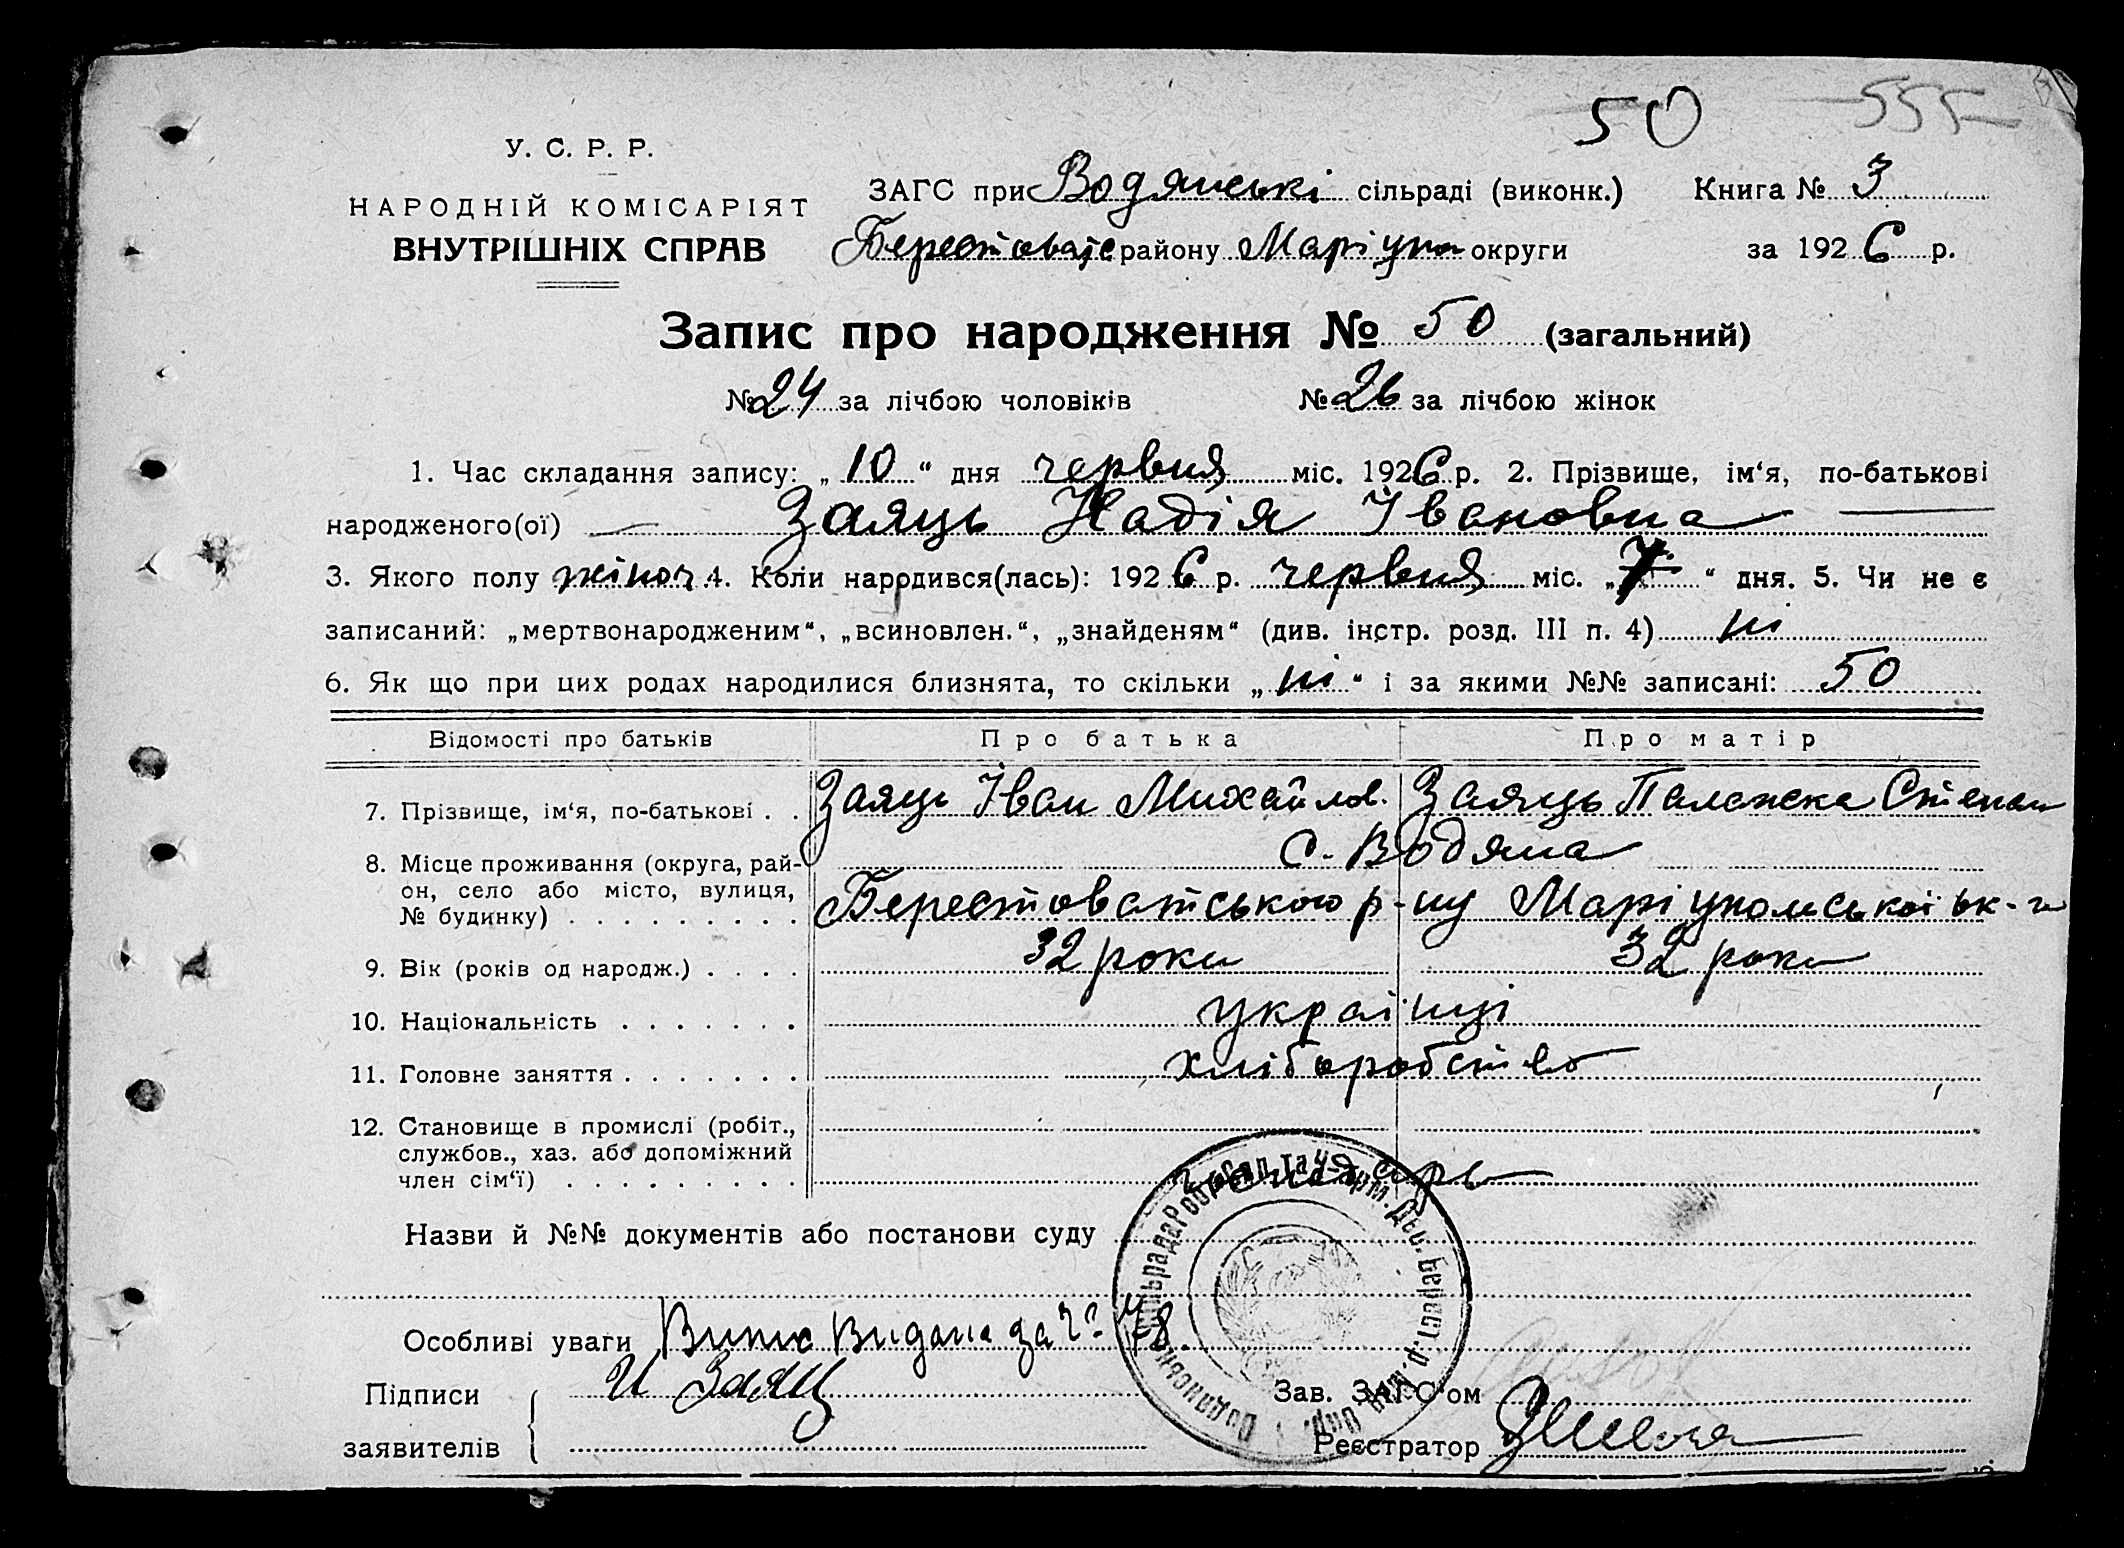 50 555
У. С. Р. Р.
НАРОДНІЙ КОМІСАРІЯТ
ВНУТРІШНІХ СПРАВ
ЗАГС при Водянські сільраді (виконк.) Книга № 3
Берестоватс району Маріуп округи за 1926 р.
Запис про народження № 50 (загальний)
№ 24 за лічбою чоловіків № 26 за лічбою жінок
1. Час складання запису: „10“ дня червня міс. 1926 р. 2. Прізвище, ім‘я, по-батькові
народженого(ої) Заяць Надія Івановна
3. Якого полу жіноч 4. Коли народився(лась): 1926 р. червня міс. „7“ дня. 5. Чи не є
записаний: „мертвонародженим“, „всиновлен.“, „знайденям“ (див. інстр. розд. III п. 4) ні
6. Як що при цих родах народилися близнята, то скільки „ні“ і за якими №№ записані: 50
Відомості про батьків Про батька Про матір
7. Прізвище, ім‘я, по-батькові . . Заяць Іван Михайлов. Заяць Палажка Степан
8. Місце проживання (округа, рай- с. Водяна
он, село або місто, вулиця,
№ будинку) . . . . . . . . . Берестоватського р-ну Маріупольської ок-и
9. Вік (років од народж.) . . . . 32 роки 32 роки
10. Національність . . . . . . . українці
11. Головне заняття . . . . . . . хліборобство
12. Становище в промислі (робіт.,
службов., хаз. або допоміжний
член сім‘ї) . . . . . . . . .
Назви й №№ документів або постанови суду
Особливі уваги Випис Видана за № 78.
Підписи И Заяц Зав. ЗАГС‘ом
заявителів Реєстратор